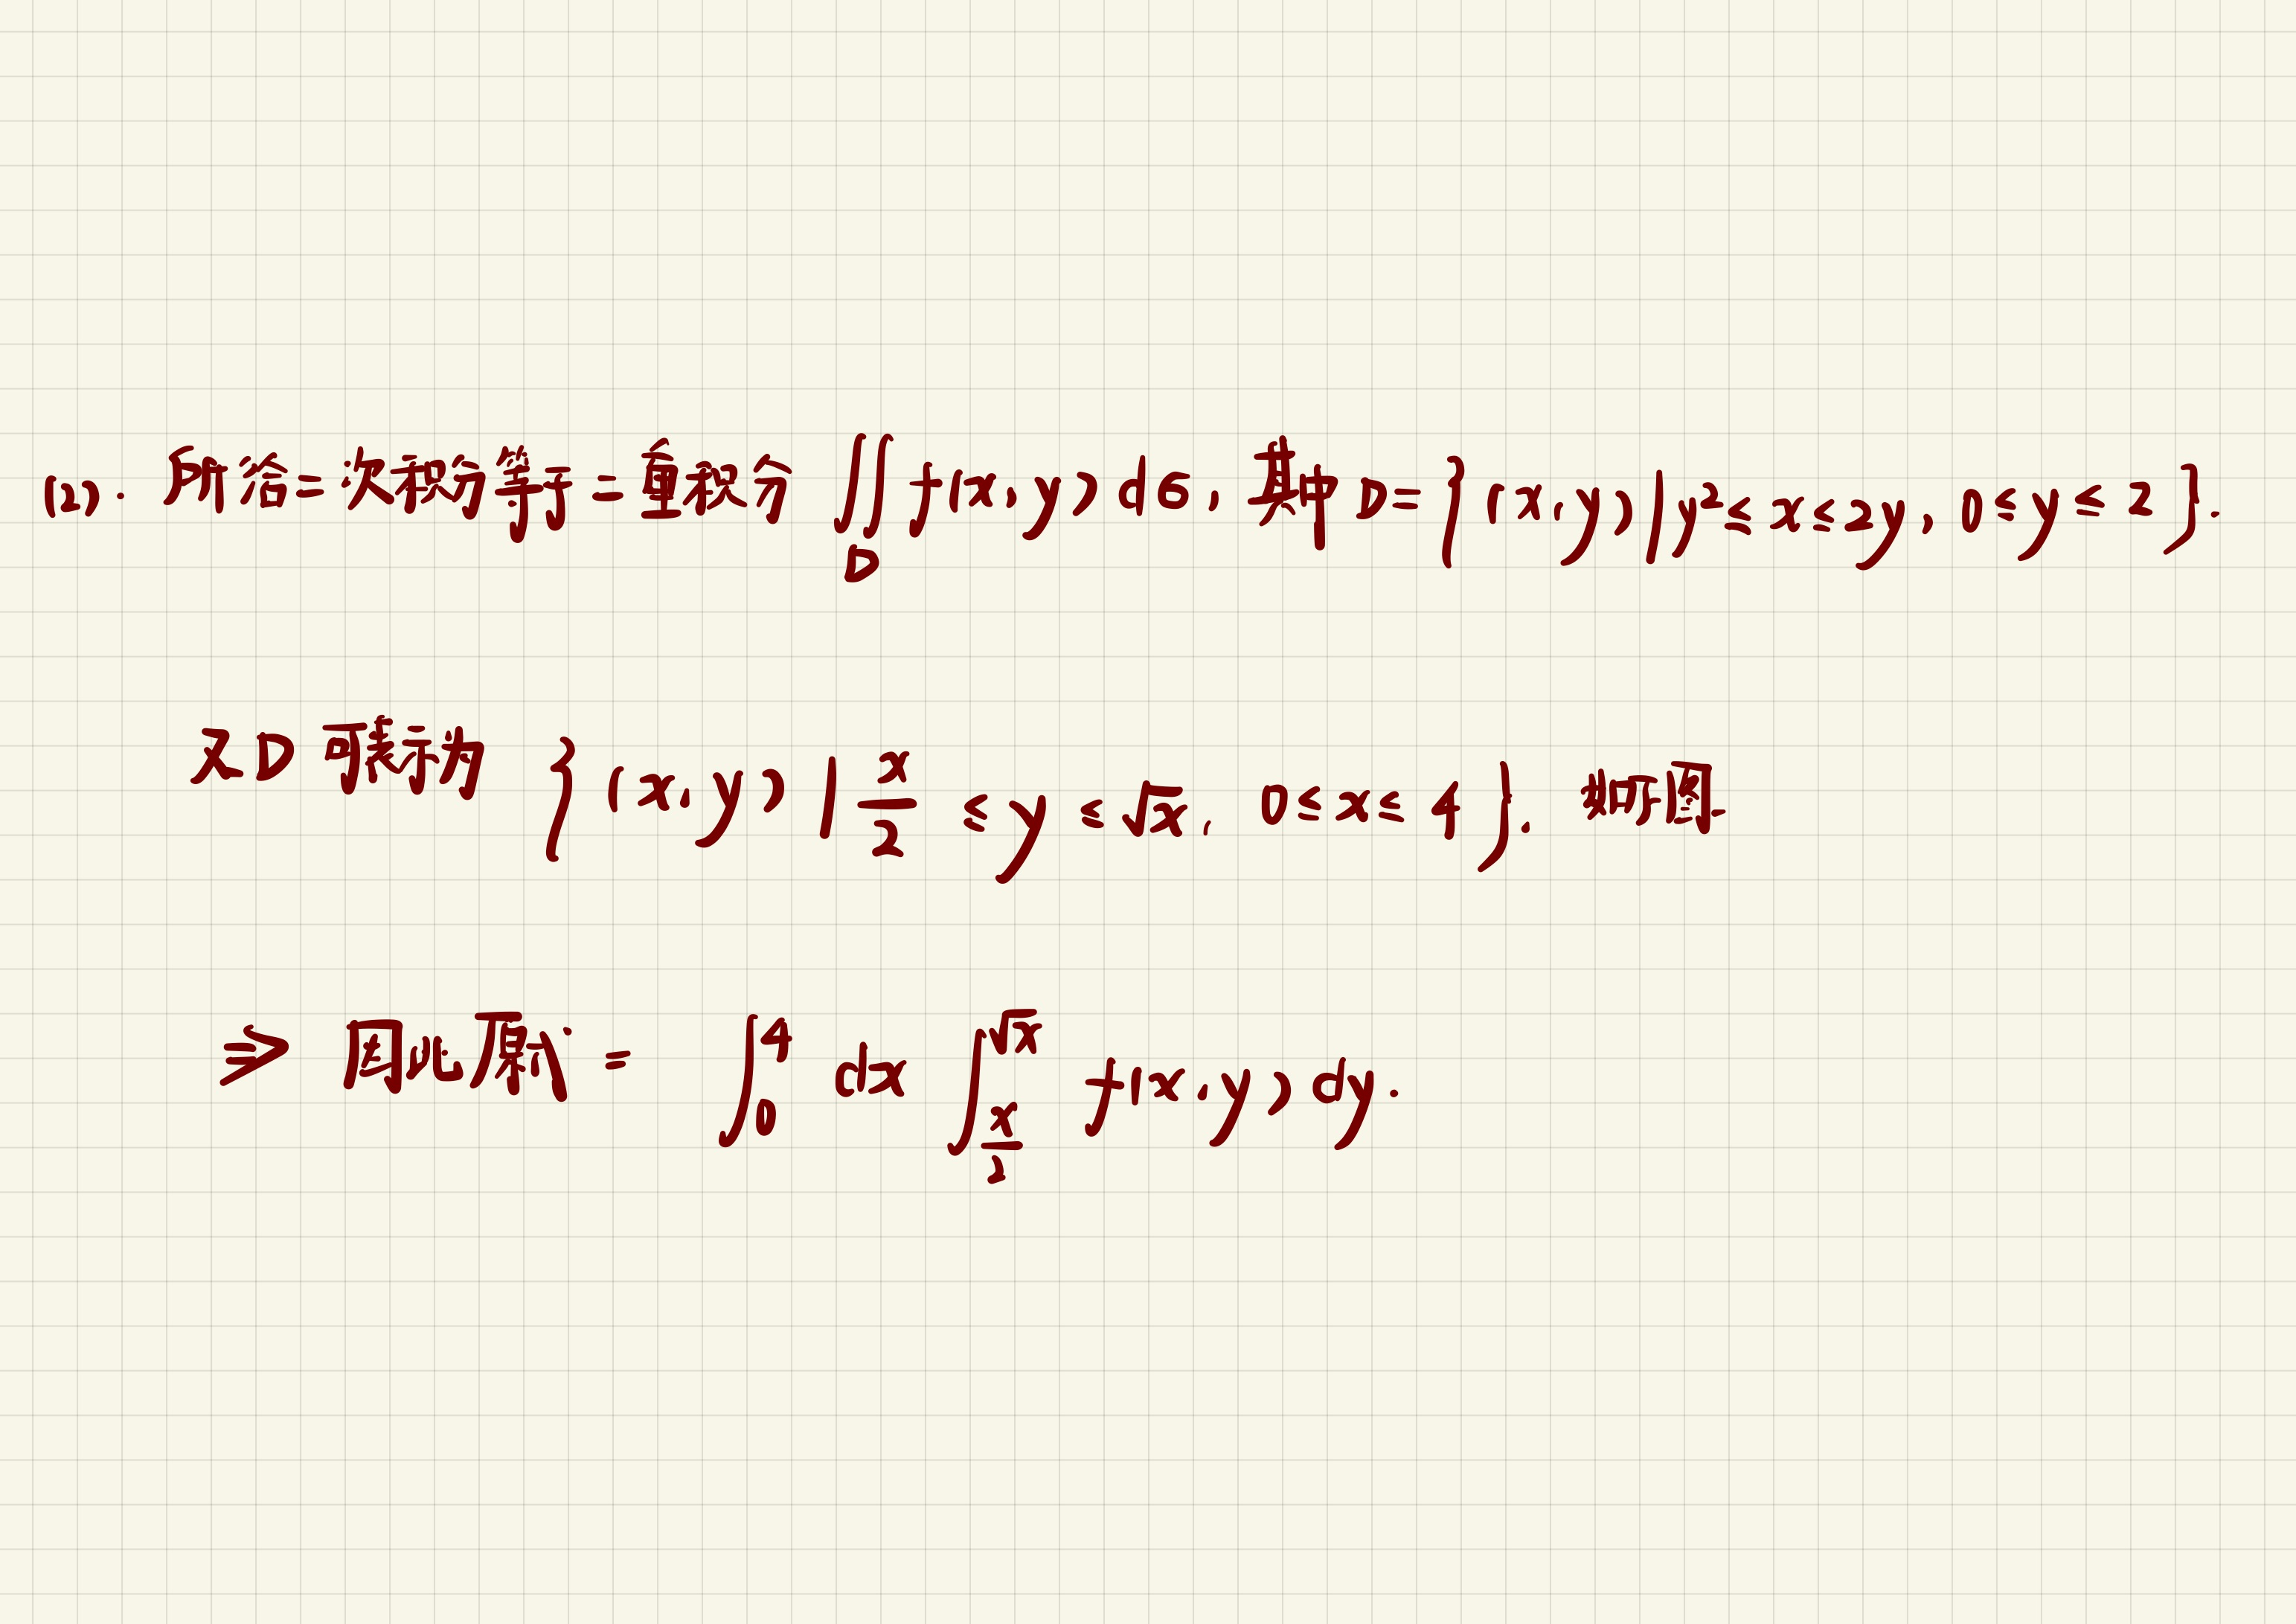 (2). 所给二次积分等于二重积分 ∬_D f(x, y) dσ, 其中 D = {(x, y) | y² ≤ x ≤ 2y, 0 ≤ y ≤ 2}.
又 D 可表示为 {(x, y) | x/2 ≤ y ≤ √x, 0 ≤ x ≤ 4}. 如图.
⇒ 因此原式 = ∫_0^4 dx ∫_{x/2}^{√x} f(x, y) dy.